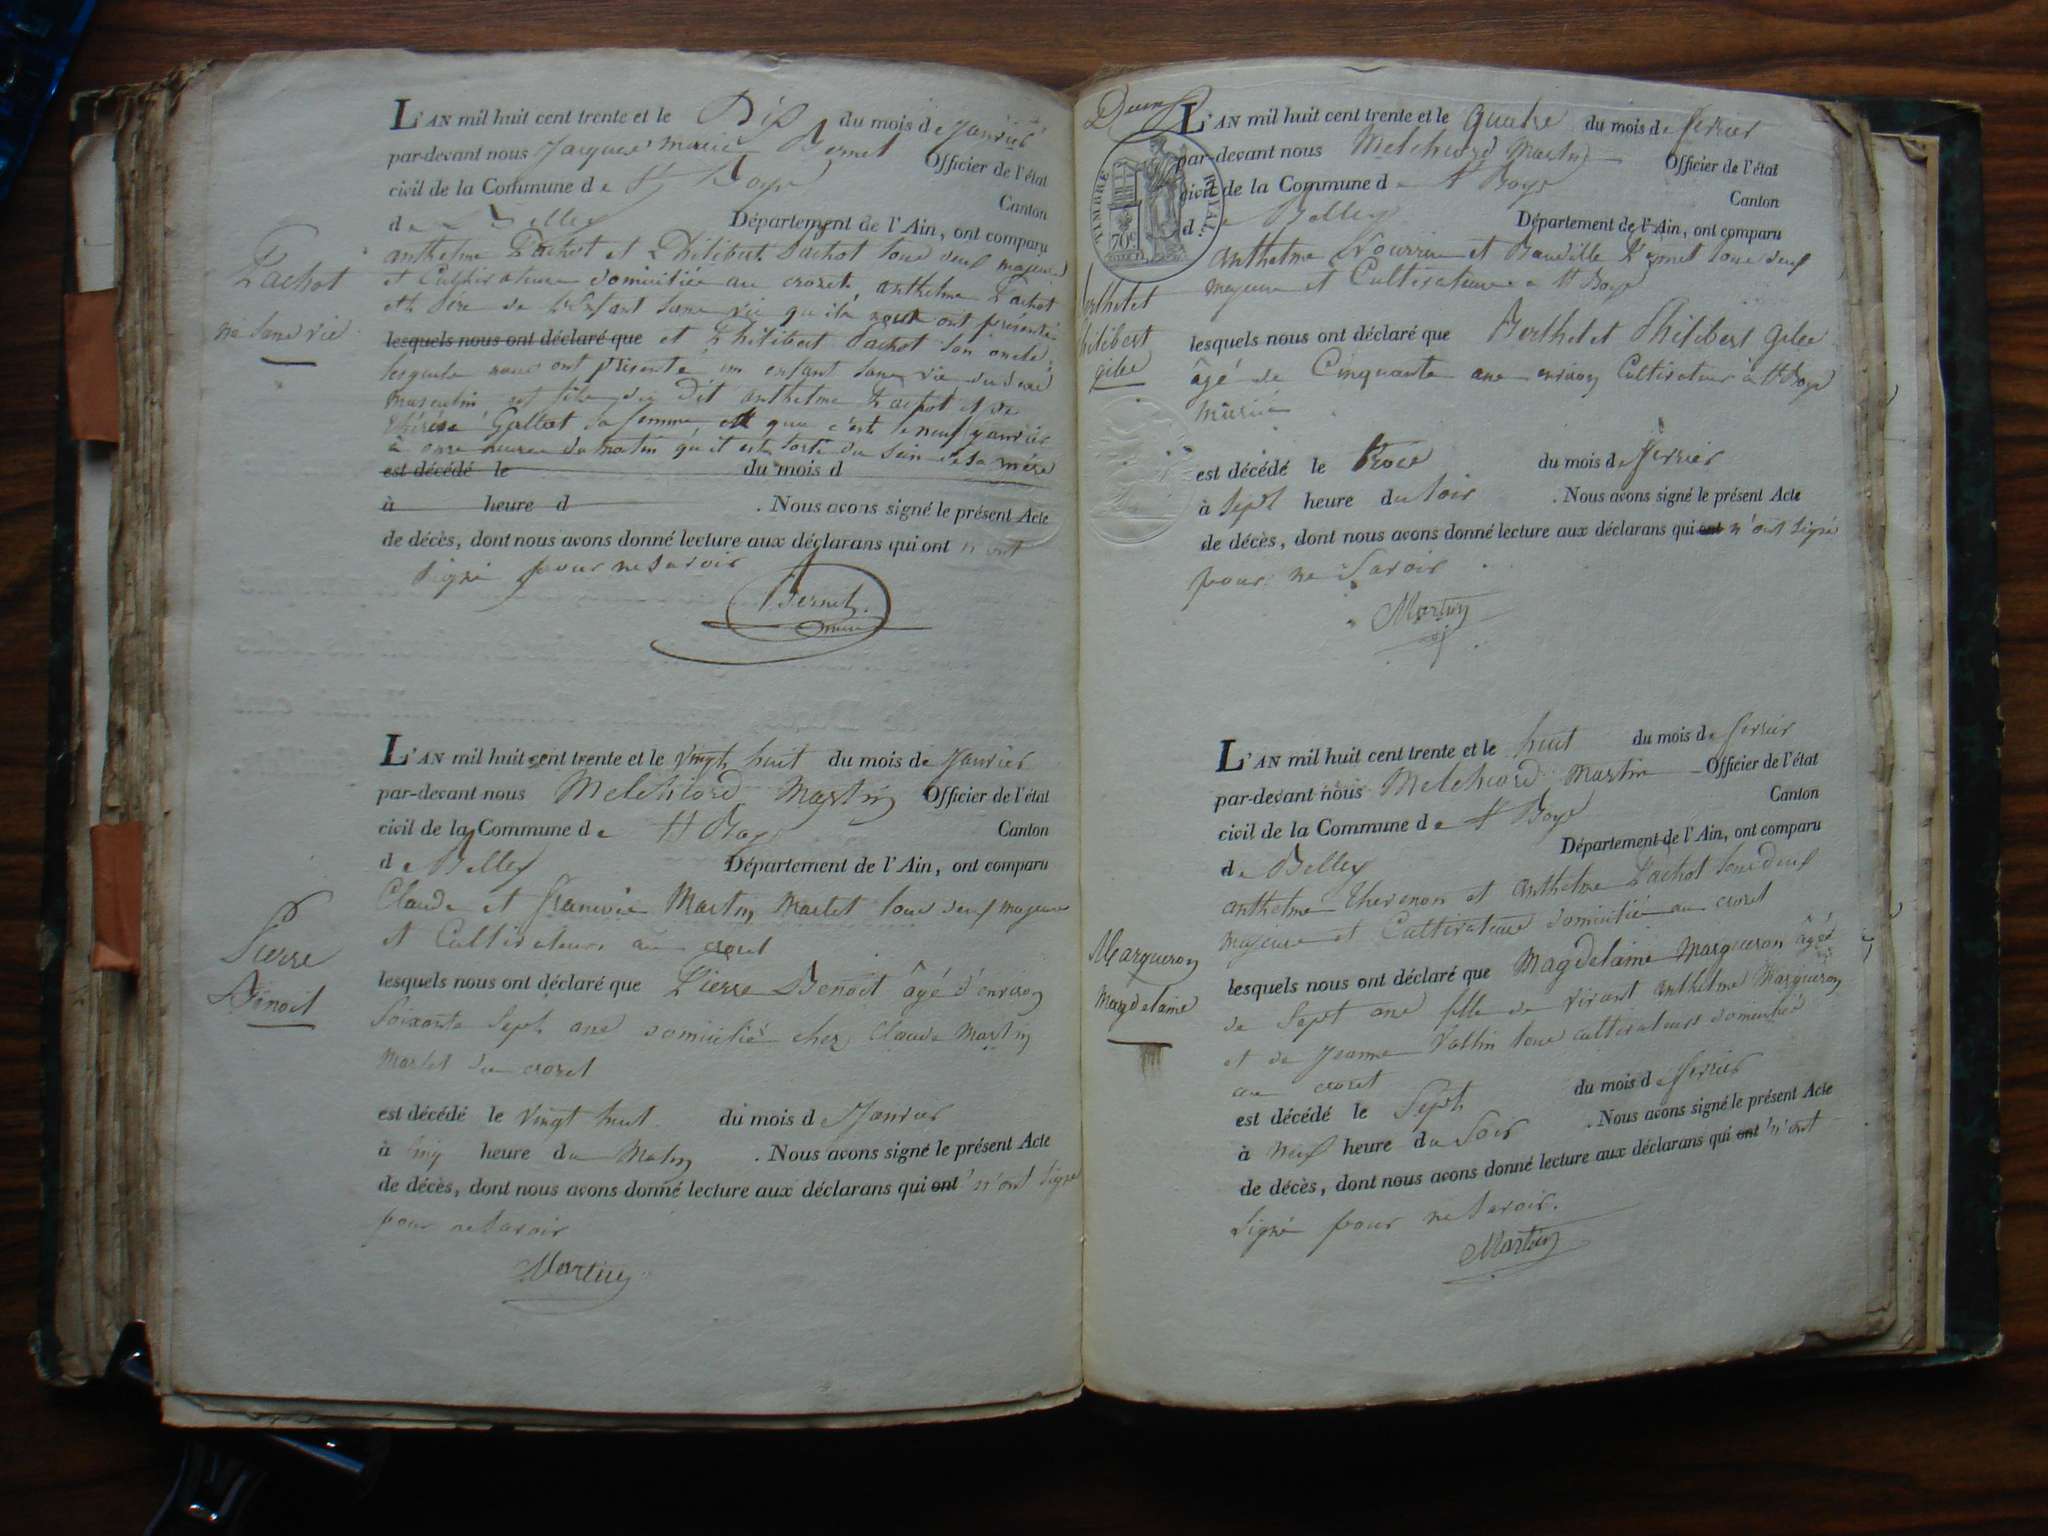 L'AN mil huit cent trente et le Dix du mois de Janvier
par-devant nous Jacques marie Bernet Officier de l'état
civil de la Commune de St Boys Canton
de Belley Département de l'Ain, ont comparu
anthelme Pachot et Philibert Pachot tous deux majeurs
et Cultivateurs domiciliés au crozet, anthelme Pachot
est Père de l'Enfant sans vie qu'ils nous ont présenté
Pachot
né sans vie
lesquels nous ont déclaré que et Philibert Pachot son oncle
lesquels nous ont présenté un enfant sans vie du sexe
masculin est fils du Dit anthelme Pachot et de
thérèse Gallet sa femme et que c'est le neuf janvier
à onze heures du matin qu'il est sorti du sein de sa mère
est décédé le du mois d
à heure d . Nous avons signé le présent Acte
de décès, dont nous avons donné lecture aux déclarans qui ont n'ont
signé pour ne savoir
Bernet
maire
L'AN mil huit cent trente et le vingt huit du mois de Janvier
par-devant nous Melchiord Martin Officier de l'état
civil de la Commune de St Boys Canton
de Belley Département de l'Ain, ont comparu
Claude et françois Martin Martet tous deux majeurs
et Cultivateurs au crozet
Pierre
Benoit
lesquels nous ont déclaré que Pierre Benoit âgé d'environ
soixante sept ans domicilié chez Claude Martin
Martet du crozet
est décédé le vingt huit du mois de Janvier
à cinq heure du Matin . Nous avons signé le présent Acte
de décès, dont nous avons donné lecture aux déclarans qui ont n'ont signé
pour ne savoir
Martin
TIMBRE ROYAL.
70c
L'AN mil huit cent trente et le quatre du mois de fevrier
par-devant nous Melchiord Martin Officier de l'état
civil de la Commune de St Boys Canton
de Belley Département de l'Ain, ont comparu
anthelme Nourrin et Baudille Bernet tous deux
majeurs et Cultivateurs a St Boys
erthetet
hilibert
gilee
lesquels nous ont déclaré que Berthetet Philibert gilee
âgé de Cinquante ans environ Cultivateur à St Boys
marié
est décédé le trois du mois de fevrier
à sept heure du soir . Nous avons signé le présent Acte
de décès, dont nous avons donné lecture aux déclarans qui ont n'ont signé
pour ne savoir
Martin
L'AN mil huit cent trente et le huit du mois de fevrier
par-devant nous Melchiord Martin Officier de l'état
civil de la Commune de St Boys Canton
de Belley Département de l'Ain, ont comparu
anthelme thevenon et anthelme Pachot tous deux
majeurs et Cultivateurs domiciliés au crozet
Marqueron
magdelaine
lesquels nous ont déclaré que Magdelaine Marqueron âgée
de sept ans fille de vivant anthelme Marqueron
et de jeanne Vallin tous cultivateurs domiciliés
au crozet
est décédé le sept du mois de fevrier
à neuf heure du soir . Nous avons signé le présent Acte
de décès, dont nous avons donné lecture aux déclarans qui ont n'ont
signé pour ne savoir.
Martin